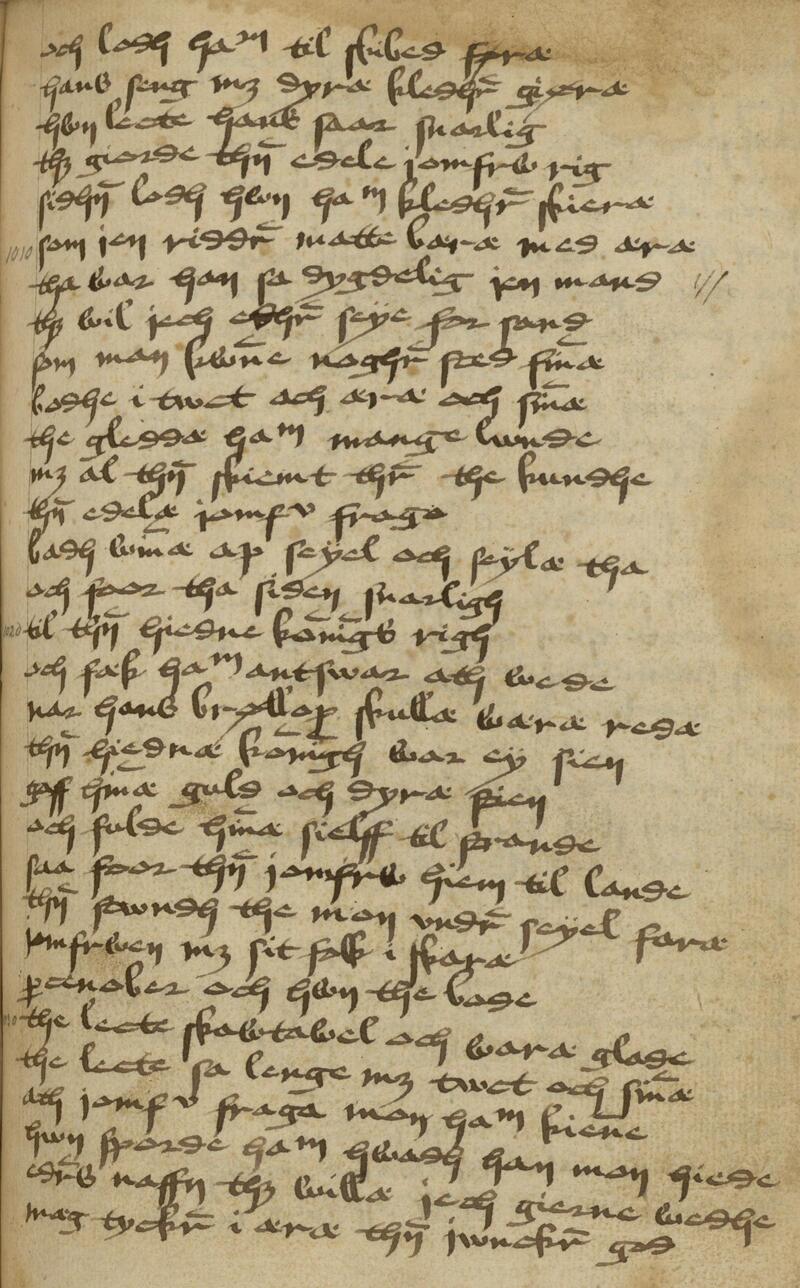 och lodh ham til skibed føræ
hans seng mz dyræ kledhr̄ giøræ
hwn lecte hans saar snarlig
thz giorde thn̄ edele jomfrw rig
sidhn̄ lodh hwn ham kledhr̄ skieræ
1010 som jen riddr̄ matte bæræ med æræ
tha war han sa dygdelig jen mand
thz wil jech edhr̄ seye for sand
som man kwn̄e noghr̄ sted fin̄æ
bodhe i twct och æræ och sin̄æ
the gleddæ ham mange lwnde
mz al thn̄ skiemt thr̄ the kundhe
thn̄ edelæ jomfv fraga
badh win̄æ op seyel och seylæ tha
och foor tha siden snarligh
1020 til thn̄ hiedne kon̄igs righ
och fæk ham antswar ath wede
nar hans brøllop skullæ wæræ redæ
thn̄ hiednæ kon̄igh war ey sien
gaff hin̄æ guld och dyræ stien
och fulde hin̄æ sielff til strande
saa foor thn̄ jomfrw hiem til lande
thn̄ stwndh the mon vndr̄ seyel faræ
jomfrwen mz sit folk i skaræ
p̄cenober och hwn the bode
1030 the lecte skawtawel och waræ glade
the lecte sa lenge mz twct och sin̄æ
ath jomfv fraga mon ham kien̄e
hwn sporde ham hwadh han mon hiede
edr̄s naffn thz willæ jech gierne wedhe
mæg tyckr̄ i æræ thn̄ jwnckr̄ god